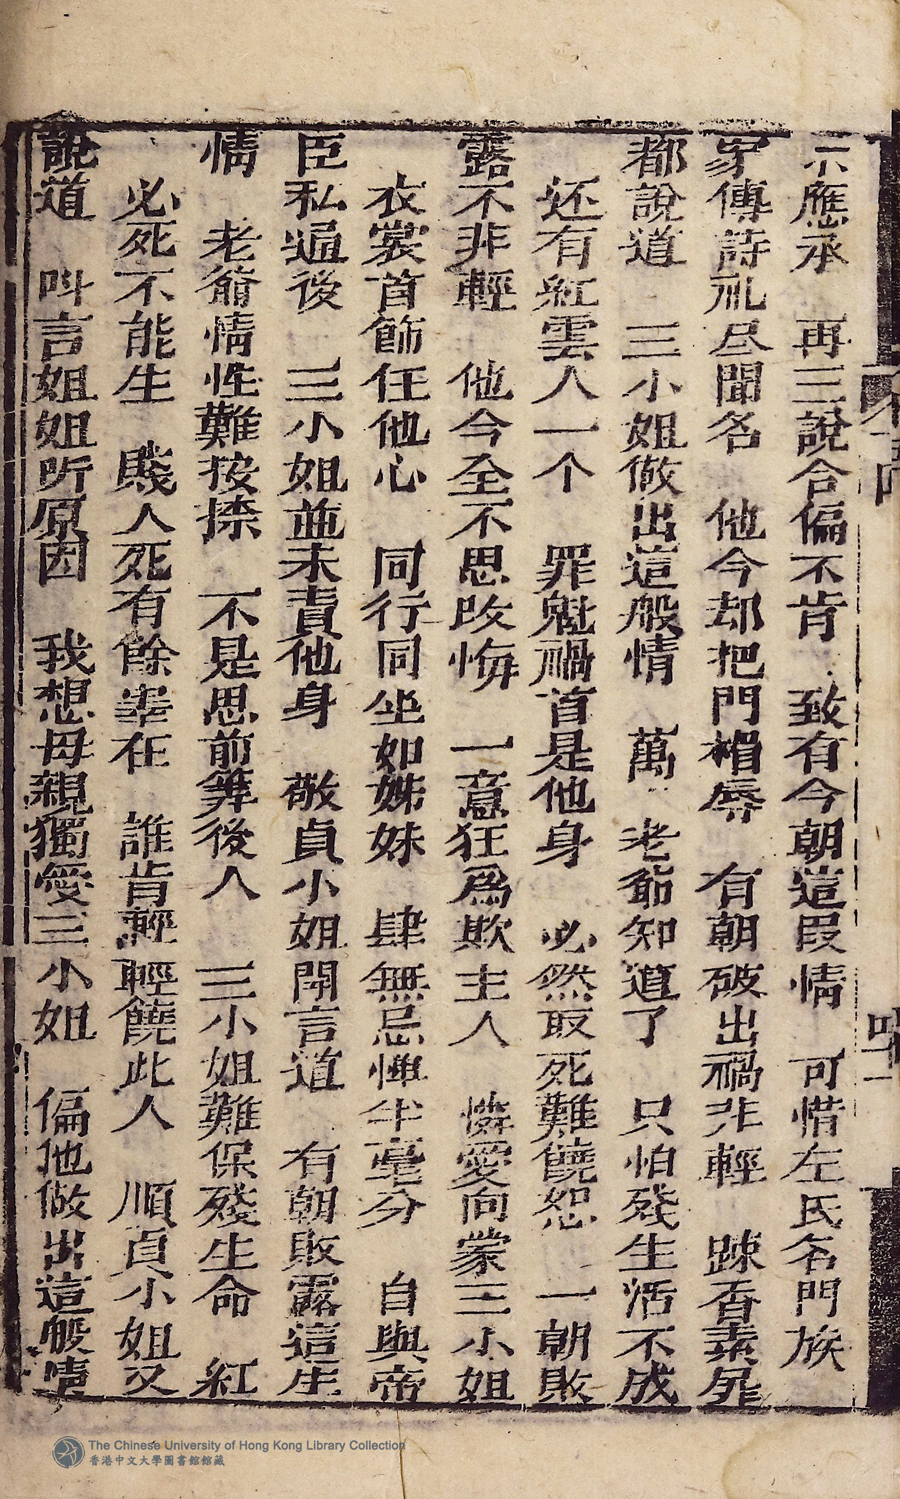 示應承　再三說合偏不肯　致有今朝這叚情　可惜左氏名門族
家傳詩礼尽聞名　他今却把門楣辱　有朝破出禍非輕　踈香素屏
都說道　三小姐做出這般情　萬一老爺知道了　只怕殘生活不成
还有紅雲人一个　罪魁禍首是他身　必然取死難饒恕　一朝敗
露不非輕　他今全不思改悔　一意狂爲欺主人　憐愛向蒙三小姐
衣裳首飾任他心　同行同坐如姊妹　肆無忌憚半毫分　自與帝
臣私過後　三小姐並未責他身　敬貞小姐開言道　有朝敗露這生
情　老爺情性難按捺　不是思前算後人　三小姐難保殘生命　紅
必死不能生　賤人死有餘辜在　誰肯輕輕饒此人　順貞小姐又
說道　呌言姐姐听原因　我想母親獨愛三小姐　偏他做出這般情